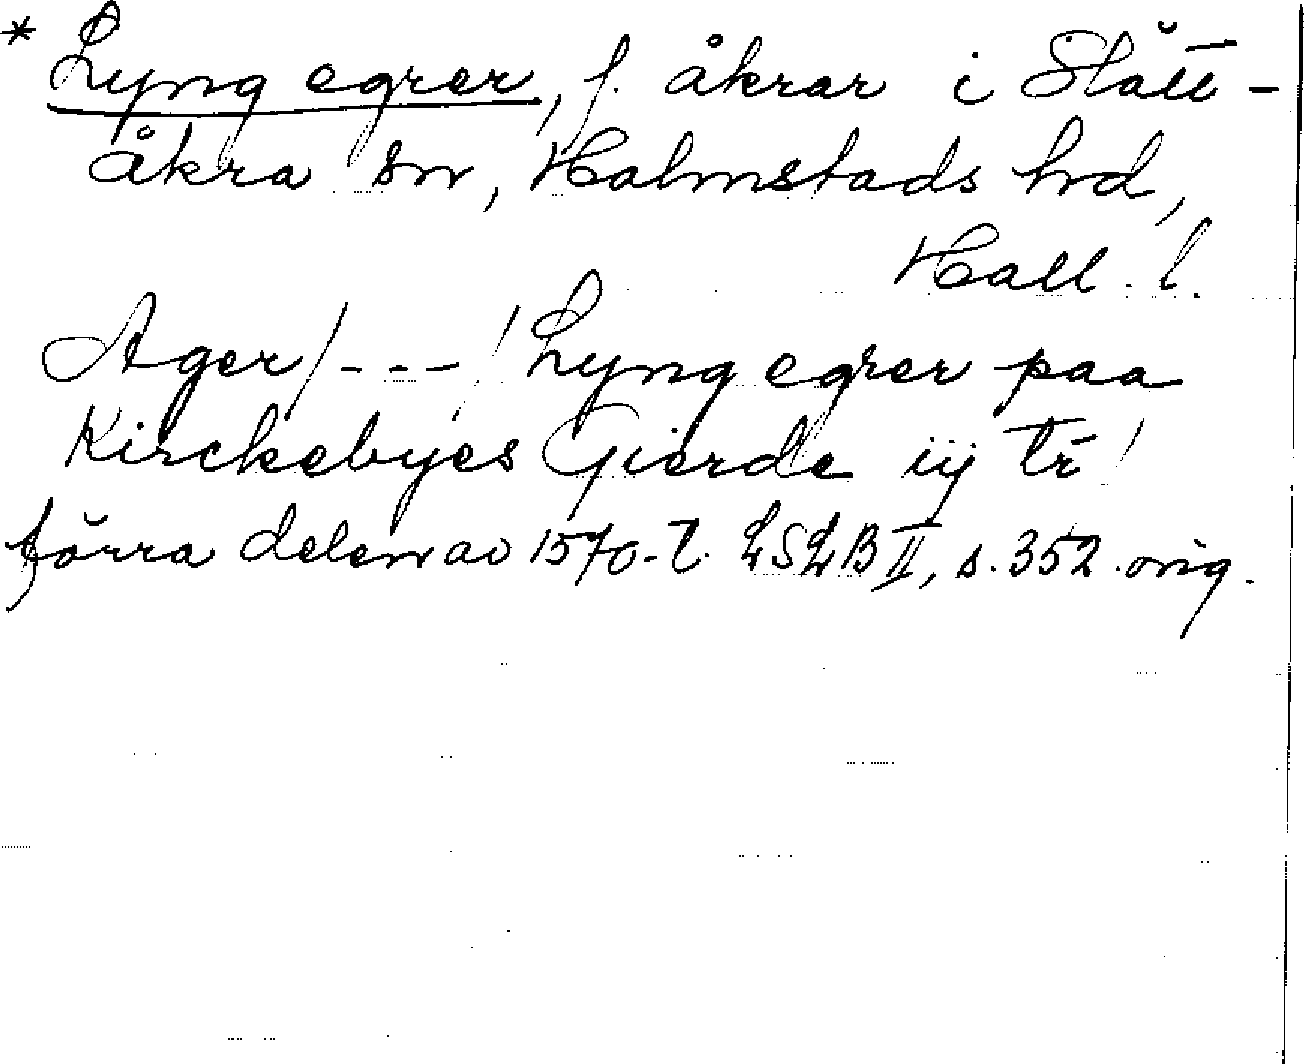 * Lyng egrer, f. åkrar i Slätt-
åkra sn, Halmstads hd,
Hall. l.
Ager/---/ Lyng egrer paa
Kirckebyes Gierde iij tr /
förra delen av 1570-t. LSLB II, s. 352. orig.